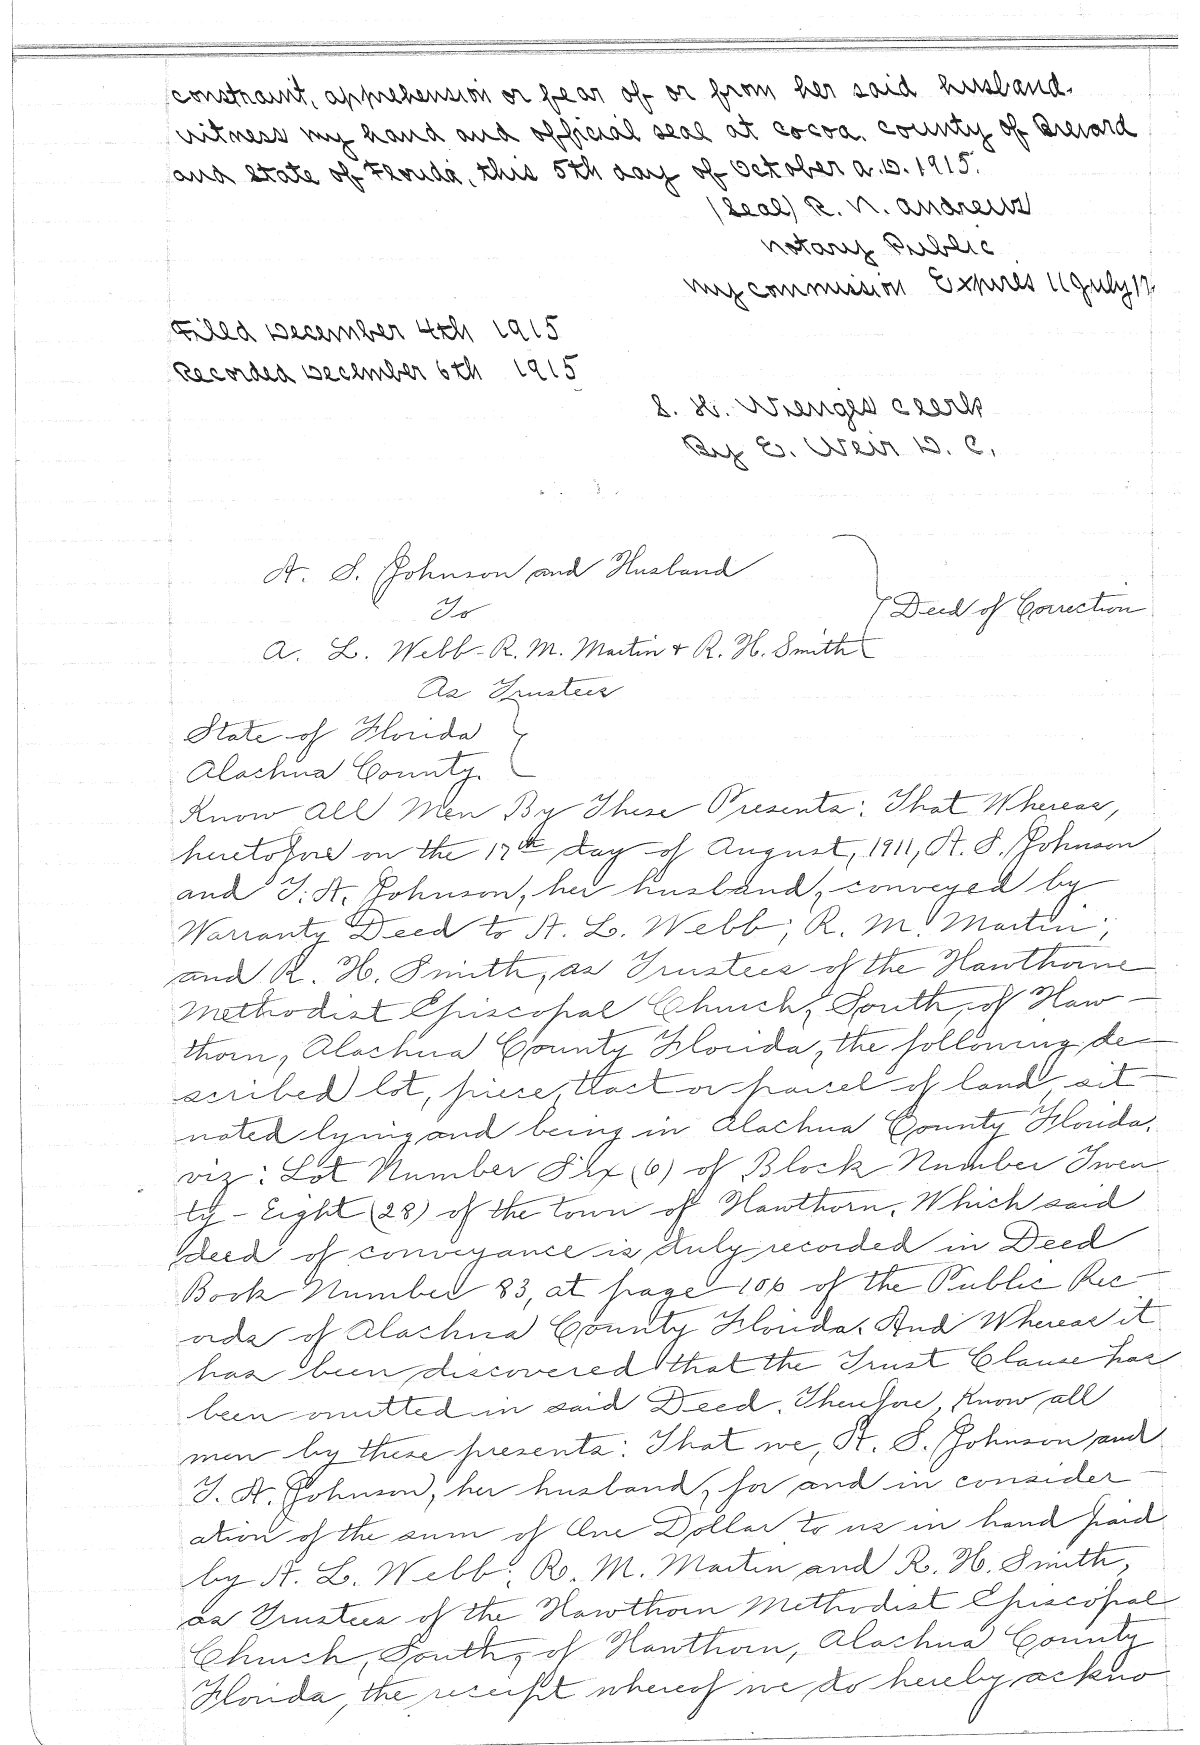 constraint, apprehension or fear of or from her said husband.
witness my hand and official seal at cocoa. county of Brevard
and State of Florida, this 5th day of October a.D. 1915.
(Seal) R. N. Andrews
Notary Public
my commission Expires 11 July 17.
Filed December 4th 1915
Recorded December 6th 1915
S. H. Wienges Clerk
By E. Weir D. C.
A. S. Johnson and Husband
To
Deed of Correction
A. L. Webb - R. M. Martin + R. H. Smith
As Trustees
State of Florida
Alachua County.
Know All Men By These Presents: That Whereas,
heretofore on the 17th day of August, 1911, A. S. Johnson
and T. A. Johnson, her husband, conveyed by
Warranty Deed to A. L. Webb; R. M. Martin;
and R. H. Smith, as Trustees of the Hawthorne
Methodist Episcopal Church, South, of Haw-
thorn, Alachua County Florida, the following de-
scribed lot, piece, tract or parcel of land, sit-
uated lying and being in Alachua County Florida,
viz: Lot Number Six (6) of Block Number Twen
ty-Eight (28) of the town of Hawthorn, Which said
deed of conveyance is duly recorded in Deed
Book Number 83, at page 106 of the Public Rec-
ords of Alachua County Florida. And Whereas it
has been discovered that the Trust Clause has
been omitted in said Deed. Therefore, Know all
men by these presents: That we, A. S. Johnson and
T. A. Johnson, her husband, for and in consider-
ation of the sum of One Dollar to us in hand paid
by A. L. Webb; R. M. Martin and R. H. Smith,
as Trustees of the Hawthorn Methodist Episcopal
Church, South, of Hawthorn, Alachua County
Florida, the receipt whereof we do hereby ackno